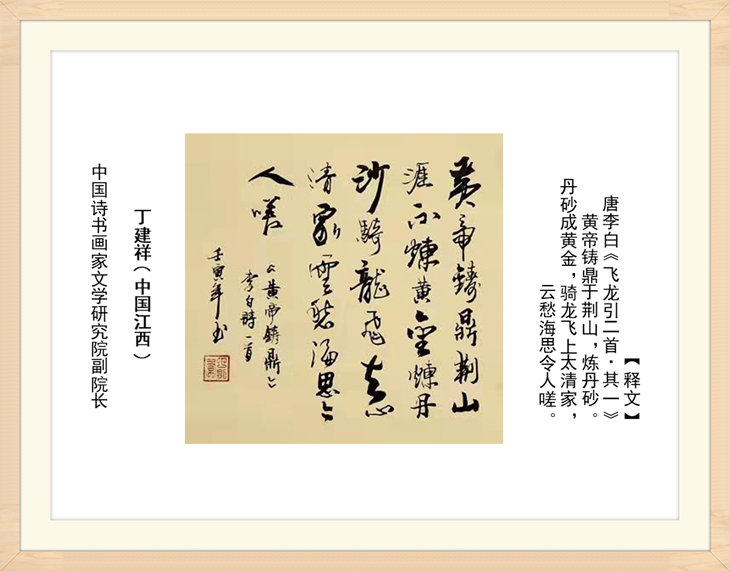 【释文】
唐李白《飞龙引二首·其一》
黄帝铸鼎于荆山，炼丹砂。
丹砂成黄金，骑龙飞上太清家，
云愁海思令人嗟。
黄帝鑄鼎荆山
涯不煉黄金煉丹
沙騎龍飛
清家雲愁海思令
人嗟
《黄帝鑄鼎》
李白詩一首
壬寅年书
丁建祥（中国江西）
中国诗书画家文学研究院副院长